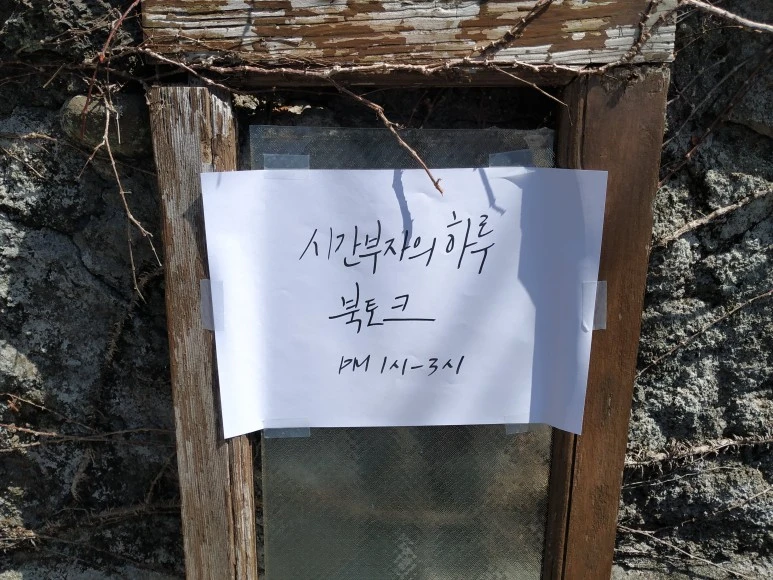 시간부자의 하루
북토크
PM 1시-3시